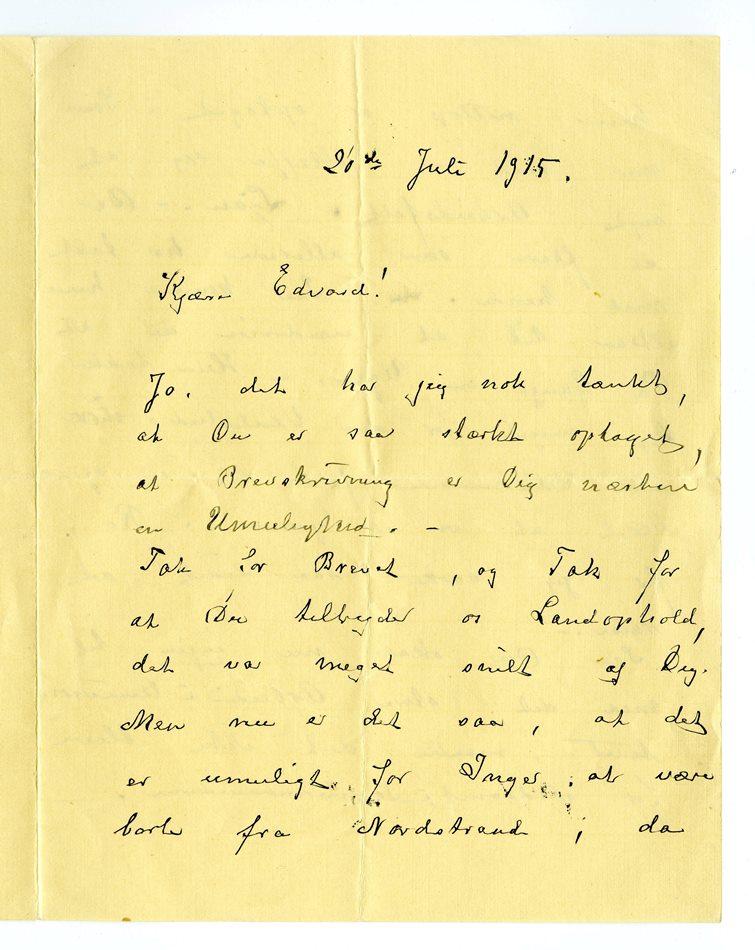 20de Juli 1915.
Kjære Edvard!
Jo, det har jeg nok tænkt,
at Du er saa stærkt optaget,
at Brevskrivning er Dig næsten
en Umulighed. –
Tak for Brevet, og Tak for
at Du tilbyder os Landophold,
det var meget snilt af Dig.
Men nu er det saa, at det
er umuligt for Inger at være
borte fra Nordstrand, da